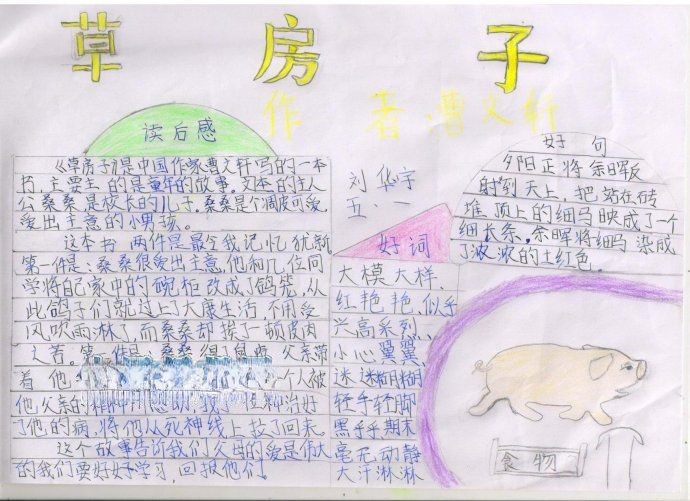 草房子
作者曹文轩
读后感
《草房子》是中国作家曹文轩写的一本
书.主要主的是童年的故事。文本的主人
公桑桑是校长的儿子.桑桑是个调皮可爱,
爱出主意的小男孩。
这本书 两件是最令我记忆犹新
第一件是:桑桑很爱出主意,他和几位同
学将自己家中的碗柜改成了鸽笼,从
此鸽子们就过上了大康生活,不用受
风吹雨淋了,而桑桑却挨了一顿皮肉
之苦。第 件是 桑桑得了鼠疮 父亲带
着他 一个人被
他父亲的精神 治好
了他的病,将他从死神线上拉了回来。
这个故事告诉我们父母的爱是伟大
的我们要好好学习,回报他们!
刘华宇
五.一
好词
大模大样、
红艳艳、似乎
兴高系列、
小心翼翼、
迷迷糊糊
轻手轻脚
黑乎乎期末
毫无动静
大汗淋淋
好句
夕阳正将余晖
射到天上,把站在砖
堆顶上的细马映成了一个
细长条.余晖将细马染成
了浓浓的土红色。
食物